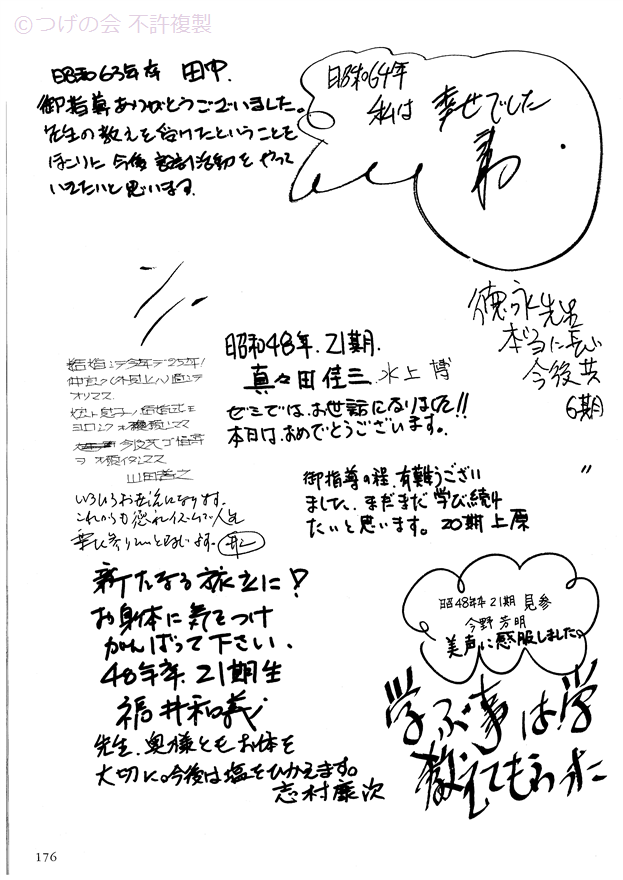 ©つげの会 不許複製
昭和63年卒 田中
御指導ありがとうございました。
先生の教えを受けたということを
ほこりに 今後 設計活動を やって
いきたいと思います
昭和64年
私は 幸せでした
徳永先生
本当に長い
今後共
6期
昭和48年.21期.
真々田佳三 水上 博
ゼミでは、お世話になりました!!
本日は、おめでとうございます。
結婚シテ今年デ25年!
オリマス
山田善之
いろいろお世話になります。
御指導の程、有難うござい
ました、まだまだ学び続け
たいと思います。20期 上原
新たなる旅立に!
お身体に気をつけ
がんばって下さい.
48年卒.21期生
福井和義
先生、奥様ともお体を
大切に。今後は塩をひかえます。
志村康次
昭48年卒 21期 見参
今野 芳明
美声に感服しました。
学ぶ事は学
教えてもらった
176